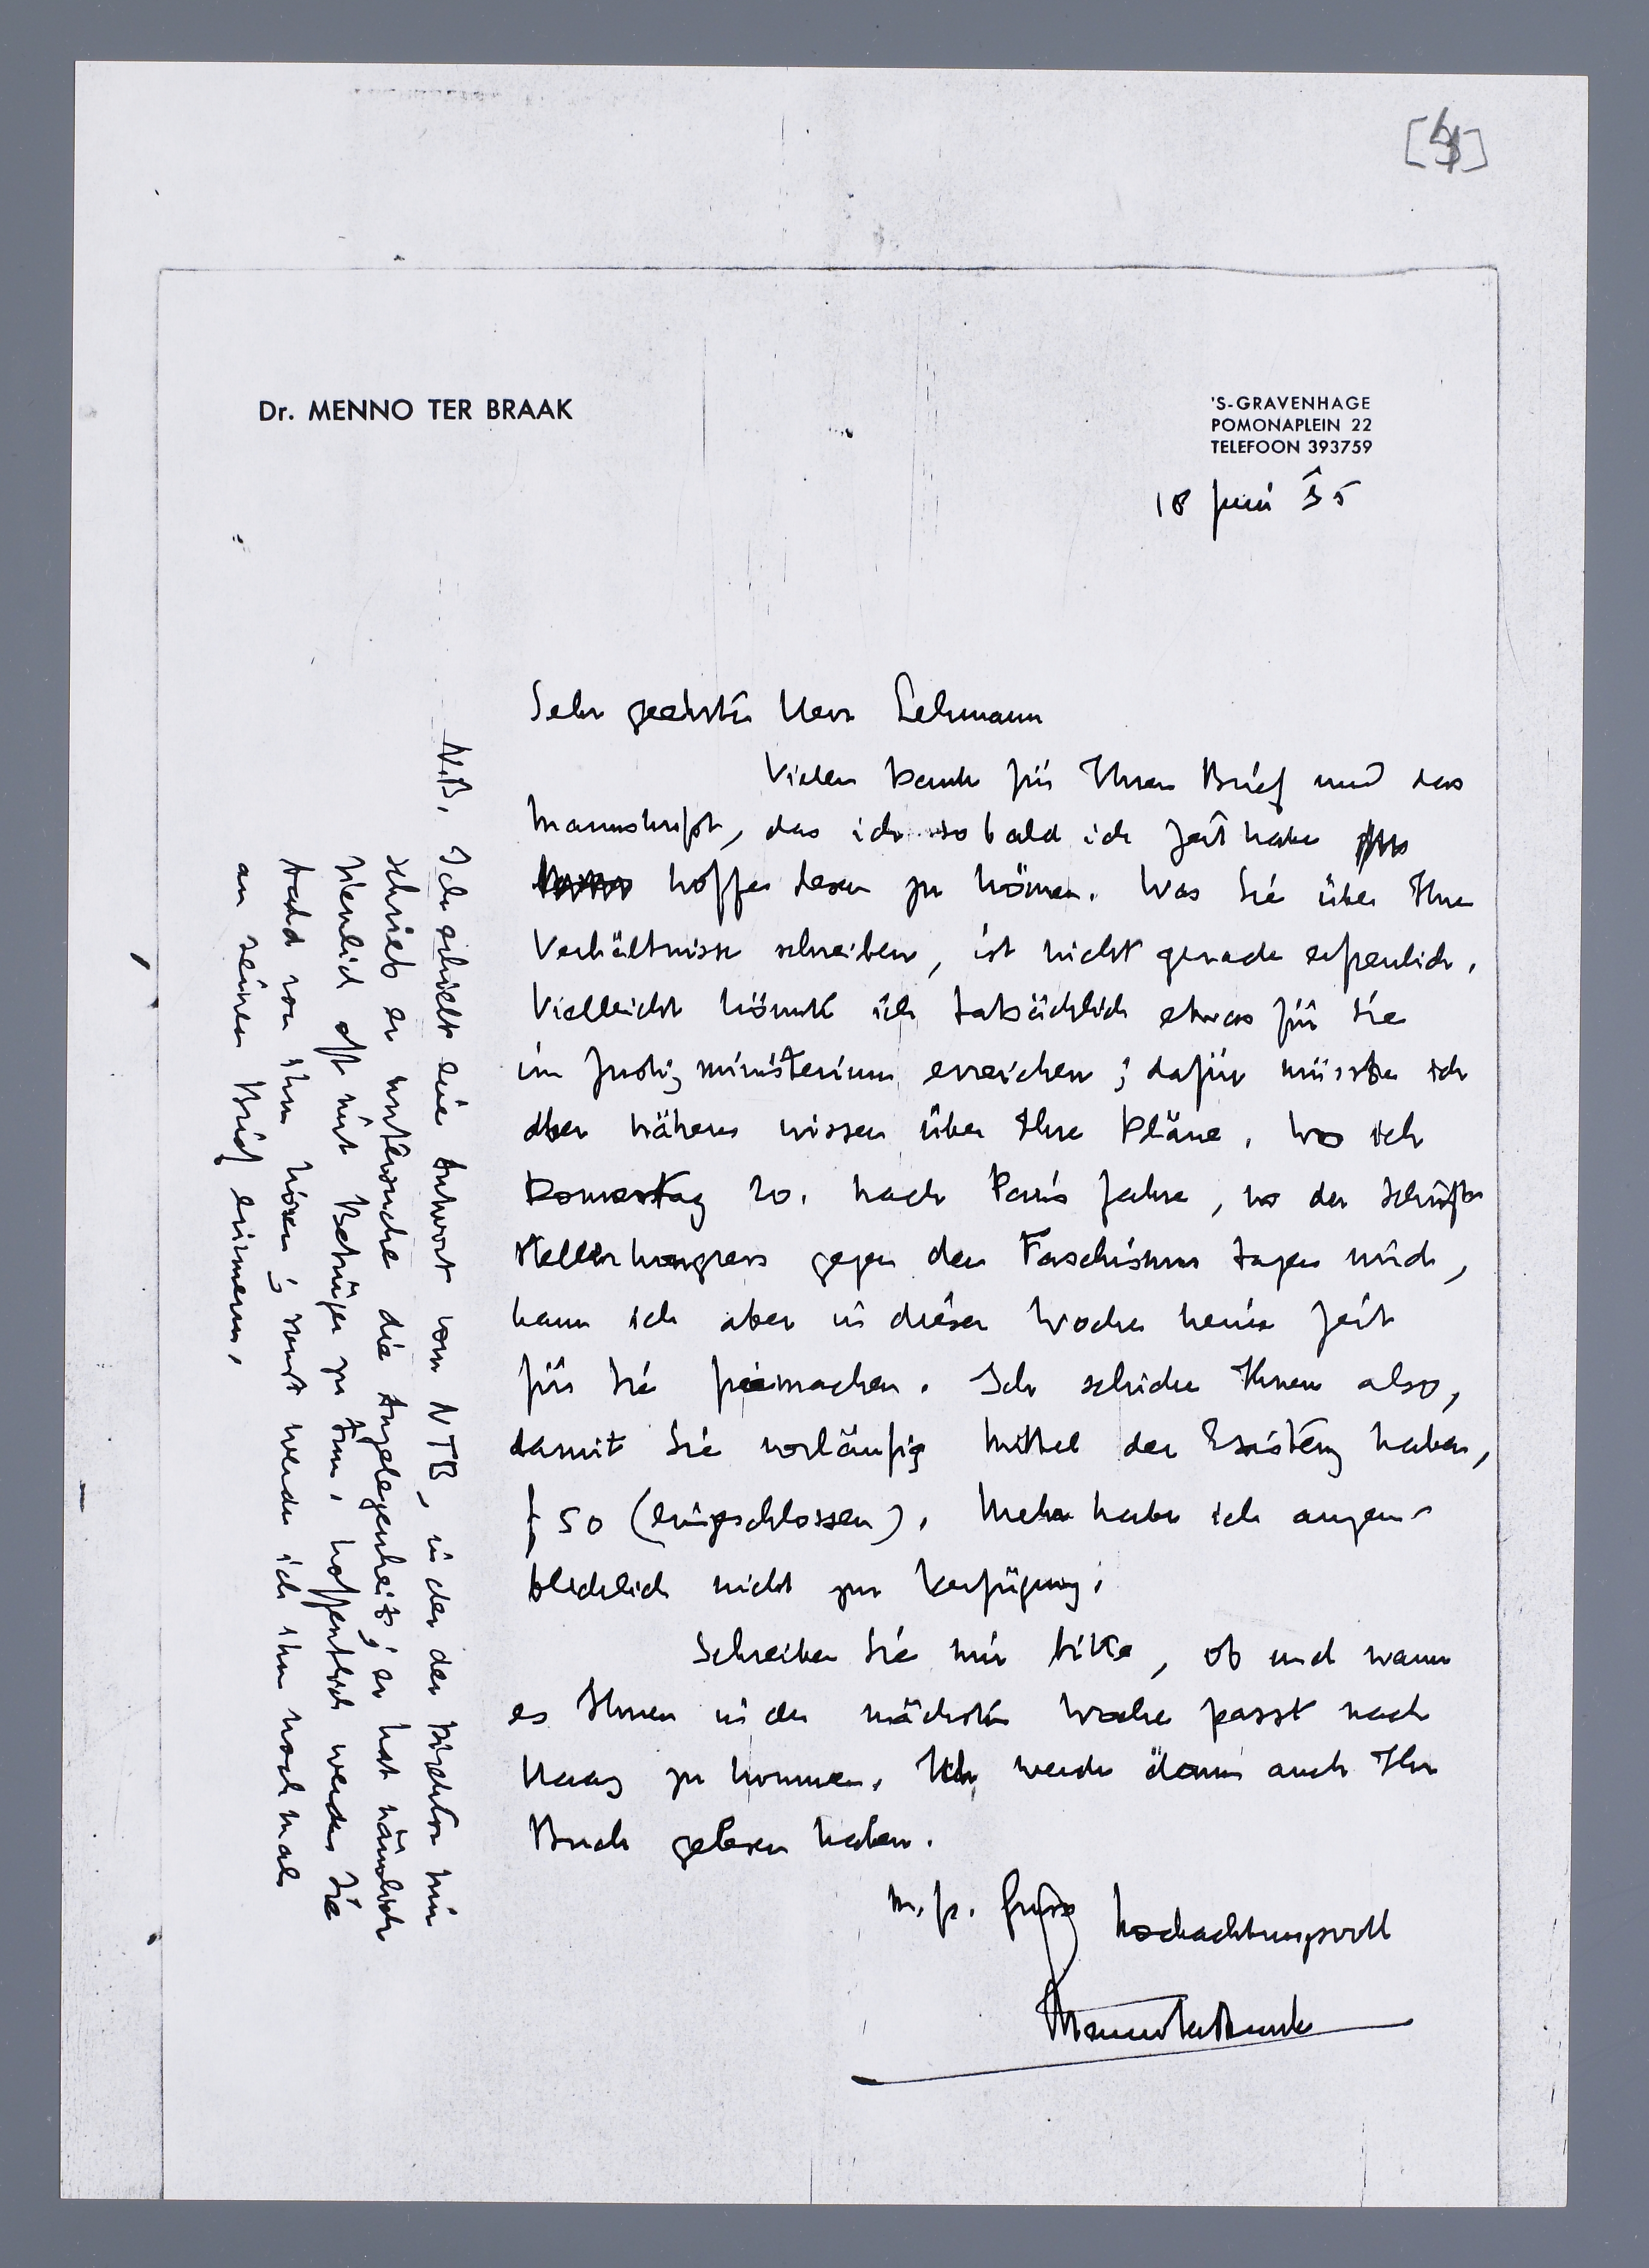 [4]
Dr. MENNO TER BRAAK
'S-GRAVENHAGE
POMONAPLEIN 22
TELEFOON 393759
18 Juni 35
Sehr geehrter Herr Lehmann
Vielen Dank für Ihren Brief und das
Manuskript, das ich so bald ich Zeit habe
hoffe lesen zu können. Was Sie über Ihre
Verhältnisse schreiben, ist nicht gerade erfreulich.
Vielleicht könnte ich tatsächlich etwas für Sie
im Justizministerium erreichen; dafür müsste ich
aber näheres wissen über Ihre Pläne. Wo ich
Donnerstag 20. nach Paris fahre, wo der Schrift-
stellerkongress gegen den Faschismus tagen wird,
kann ich aber in dieser Woche keine Zeit
für Sie freimachen. Ich schicke Ihnen also,
damit Sie vorläufig Mittel der Existenz haben,
f 50 (eingeschlossen). Mehr habe ich augen-
blicklich nicht zur Verfügung.
Schreiben Sie mir bitte, ob und wann
es Ihnen in der nächsten Woche passt nach
Haag zu kommen. Ich werde dann auch Ihr
Buch gelesen haben.
M. fr. Gruss hochachtungsvoll
Menno ter Braak
N.B. Ich erhielt eine Antwort vom NTB, in der der Direktor mir
schrieb er untersuche die Angelegenheit; er hat nämlich
ziemlich oft mit Betrüger zu tun. Hoffentlich werden Sie
bald von ihm hören; sonst werde ich ihn nochmals
an seinen Brief erinnern.